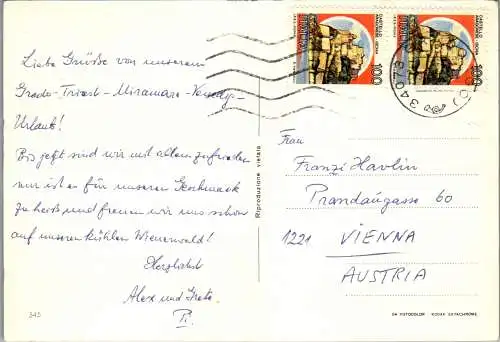 Liebe Grüße von unserem
Grado-Triest-Miramare-Venedig-
Urlaub!
Bis jetzt sind wir mit allem zufrieden
nur ist es für unseren Geschmack
zu heiß und freuen wir uns schon
auf unseren kühlen Wienerwald!
Herzlichst
Alex und Greta
345
Riproduzione vietata
100
100
34073
Frau
Franzi Havlin
Prandaugasse 60
1221 VIENNA
AUSTRIA
DA FOTOCOLOR KODAK EKTACHROME